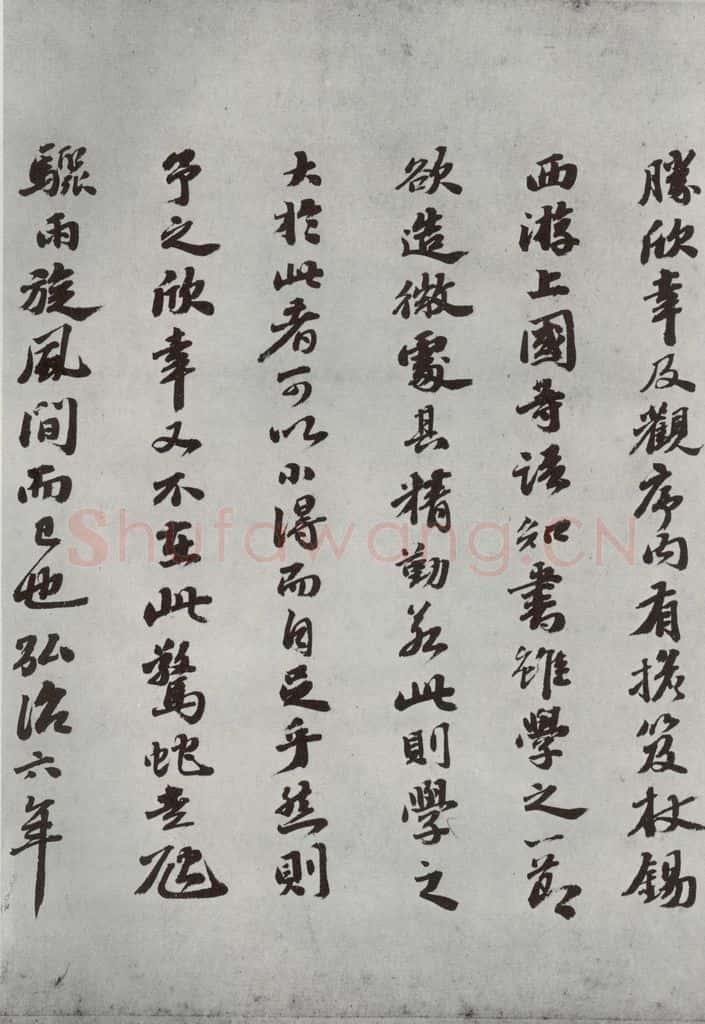 勝欣幸及觀序內有擔笈杖錫
西游上國等語知書雖學之一節
欲造微處其精勤若此則學之
大於此者可以小得而自足乎然則
予之欣幸又不在此驚蛇走虺
驟雨旋風間而已也弘治六年
Shufawang.CN